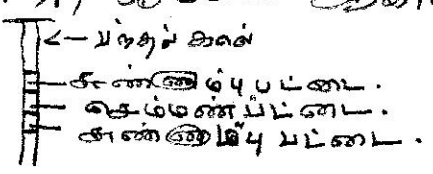 பந்தல் கால்
சுண்ணாம்பு பட்டை.
செம்மண் பட்டை.
சுண்ணாம்பு பட்டை.